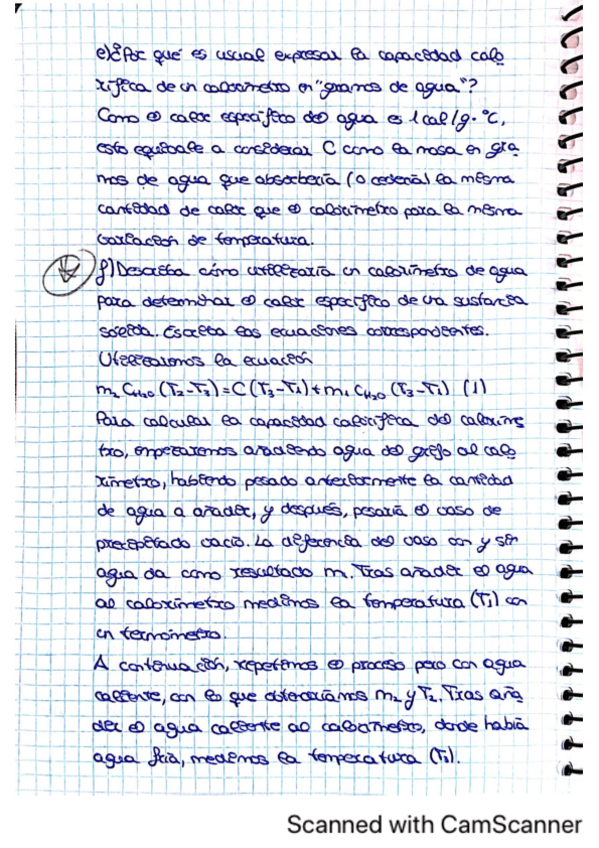 e) ¿Por qué es usual expresar la capacidad calo
rífica de un calorímetro en "gramos de agua"?
Como el calor específico del agua es 1 cal/g·°C,
esto equivale a considerar C como la masa en gra
mos de agua que absorbería (o cedería) la misma
cantidad de calor que el calorímetro para la misma
variación de temperatura.
f) Describa cómo utilizaría un calorímetro de agua
para determinar el calor específico de una sustancia
sólida. Escriba las ecuaciones correspondientes.
Utilizaremos la ecuación
m₂ C_H₂O (T₂-T₃) = C (T₃-T₁) + m₁ C_H₂O (T₃-T₁) (1)
Para calcular la capacidad calorífica del caloríme
tro, empezaremos añadiendo agua del grifo al calo
rímetro, habiendo pesado anteriormente la cantidad
de agua a añadir, y después, pesaría el vaso de
precipitado vacío. La diferencia del vaso con y sin
agua da como resultado m₁. Tras añadir el agua
al calorímetro medimos la temperatura (T₁) con
un termómetro.
A continuación, repetimos el proceso pero con agua
caliente, con lo que obtendríamos m₂ y T₂. Tras aña
dir el agua caliente al calorímetro, donde había
agua fría, medimos la temperatura (T₃).
Scanned with CamScanner